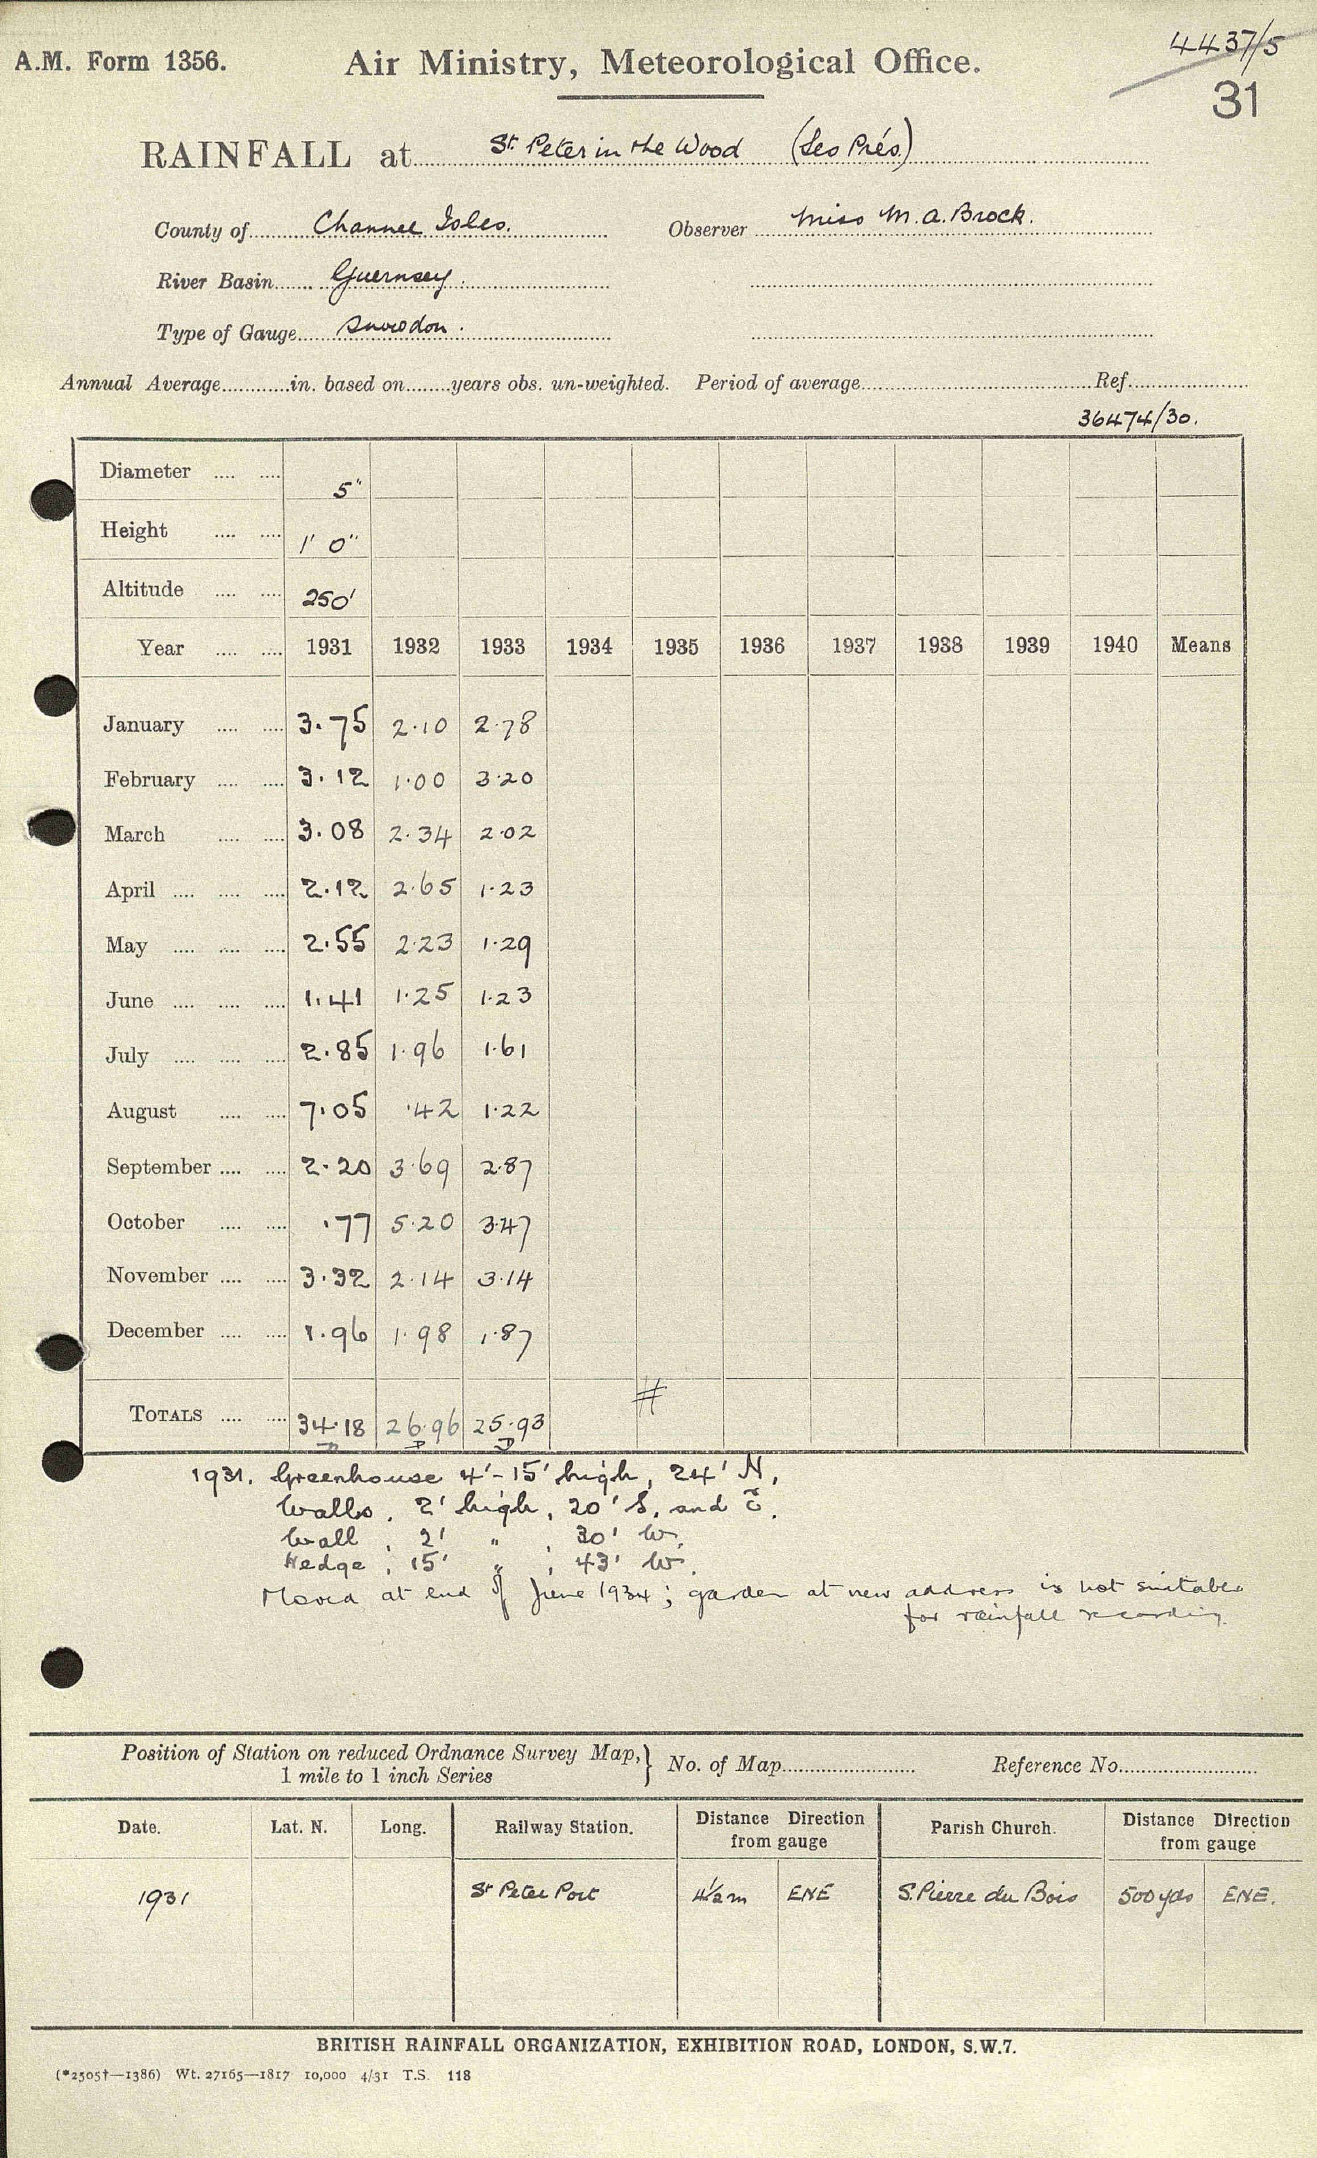 4437/5
A.M. Form 1356.
Air Ministry, Meteorological Office.
31
RAINFALL at St. Peter in the Wood (Les Prés)
County of Channel Isles. Observer Miss M. A. Brock.
River Basin Guernsey.
Type of Gauge Snowdon.
Annual Average............in. based on........years obs. un-weighted. Period of average............ Ref............
36474/30.
Diameter .... .... 5"
Height .... .... 1' 0"
Altitude .... .... 250'
Year .... .... 1931 1932 1933 1934 1935 1936 1937 1938 1939 1940 Means
January .... .... 3.75 2.10 2.78
February .... .... 3.12 1.00 3.20
March .... .... 3.08 2.34 2.02
April .... .... .... 2.12 2.65 1.23
May .... .... .... 2.55 2.23 1.29
June .... .... .... 1.41 1.25 1.23
July .... .... .... 2.85 1.96 1.61
August .... .... 7.05 .42 1.22
September .... .... 2.20 3.69 2.87
October .... .... .77 5.20 3.47
November .... .... 3.32 2.14 3.14
December .... .... 1.96 1.98 1.87
#
TOTALS .... .... 34.18 26.96 25.93
1931. Greenhouse 4'-15' high, 24' N,
Walls, 2' high, 20' S, and E.
Wall, 2' " , 30' W.
Hedge, 15' " , 43' W.
Moved at end of June 1934; garden at new address is not suitable
for rainfall recording.
Position of Station on reduced Ordnance Survey Map, } No. of Map............ Reference No............
1 mile to 1 inch Series
Date. Lat. N. Long. Railway Station. Distance Direction from gauge Parish Church. Distance Direction from gauge
1931 St Peter Port 4½ m ENE S. Pierre du Bois 500 yds ENE.
BRITISH RAINFALL ORGANIZATION, EXHIBITION ROAD, LONDON, S.W.7.
(*2505†—1386) Wt. 27165—1817 10,000 4/31 T.S. 118